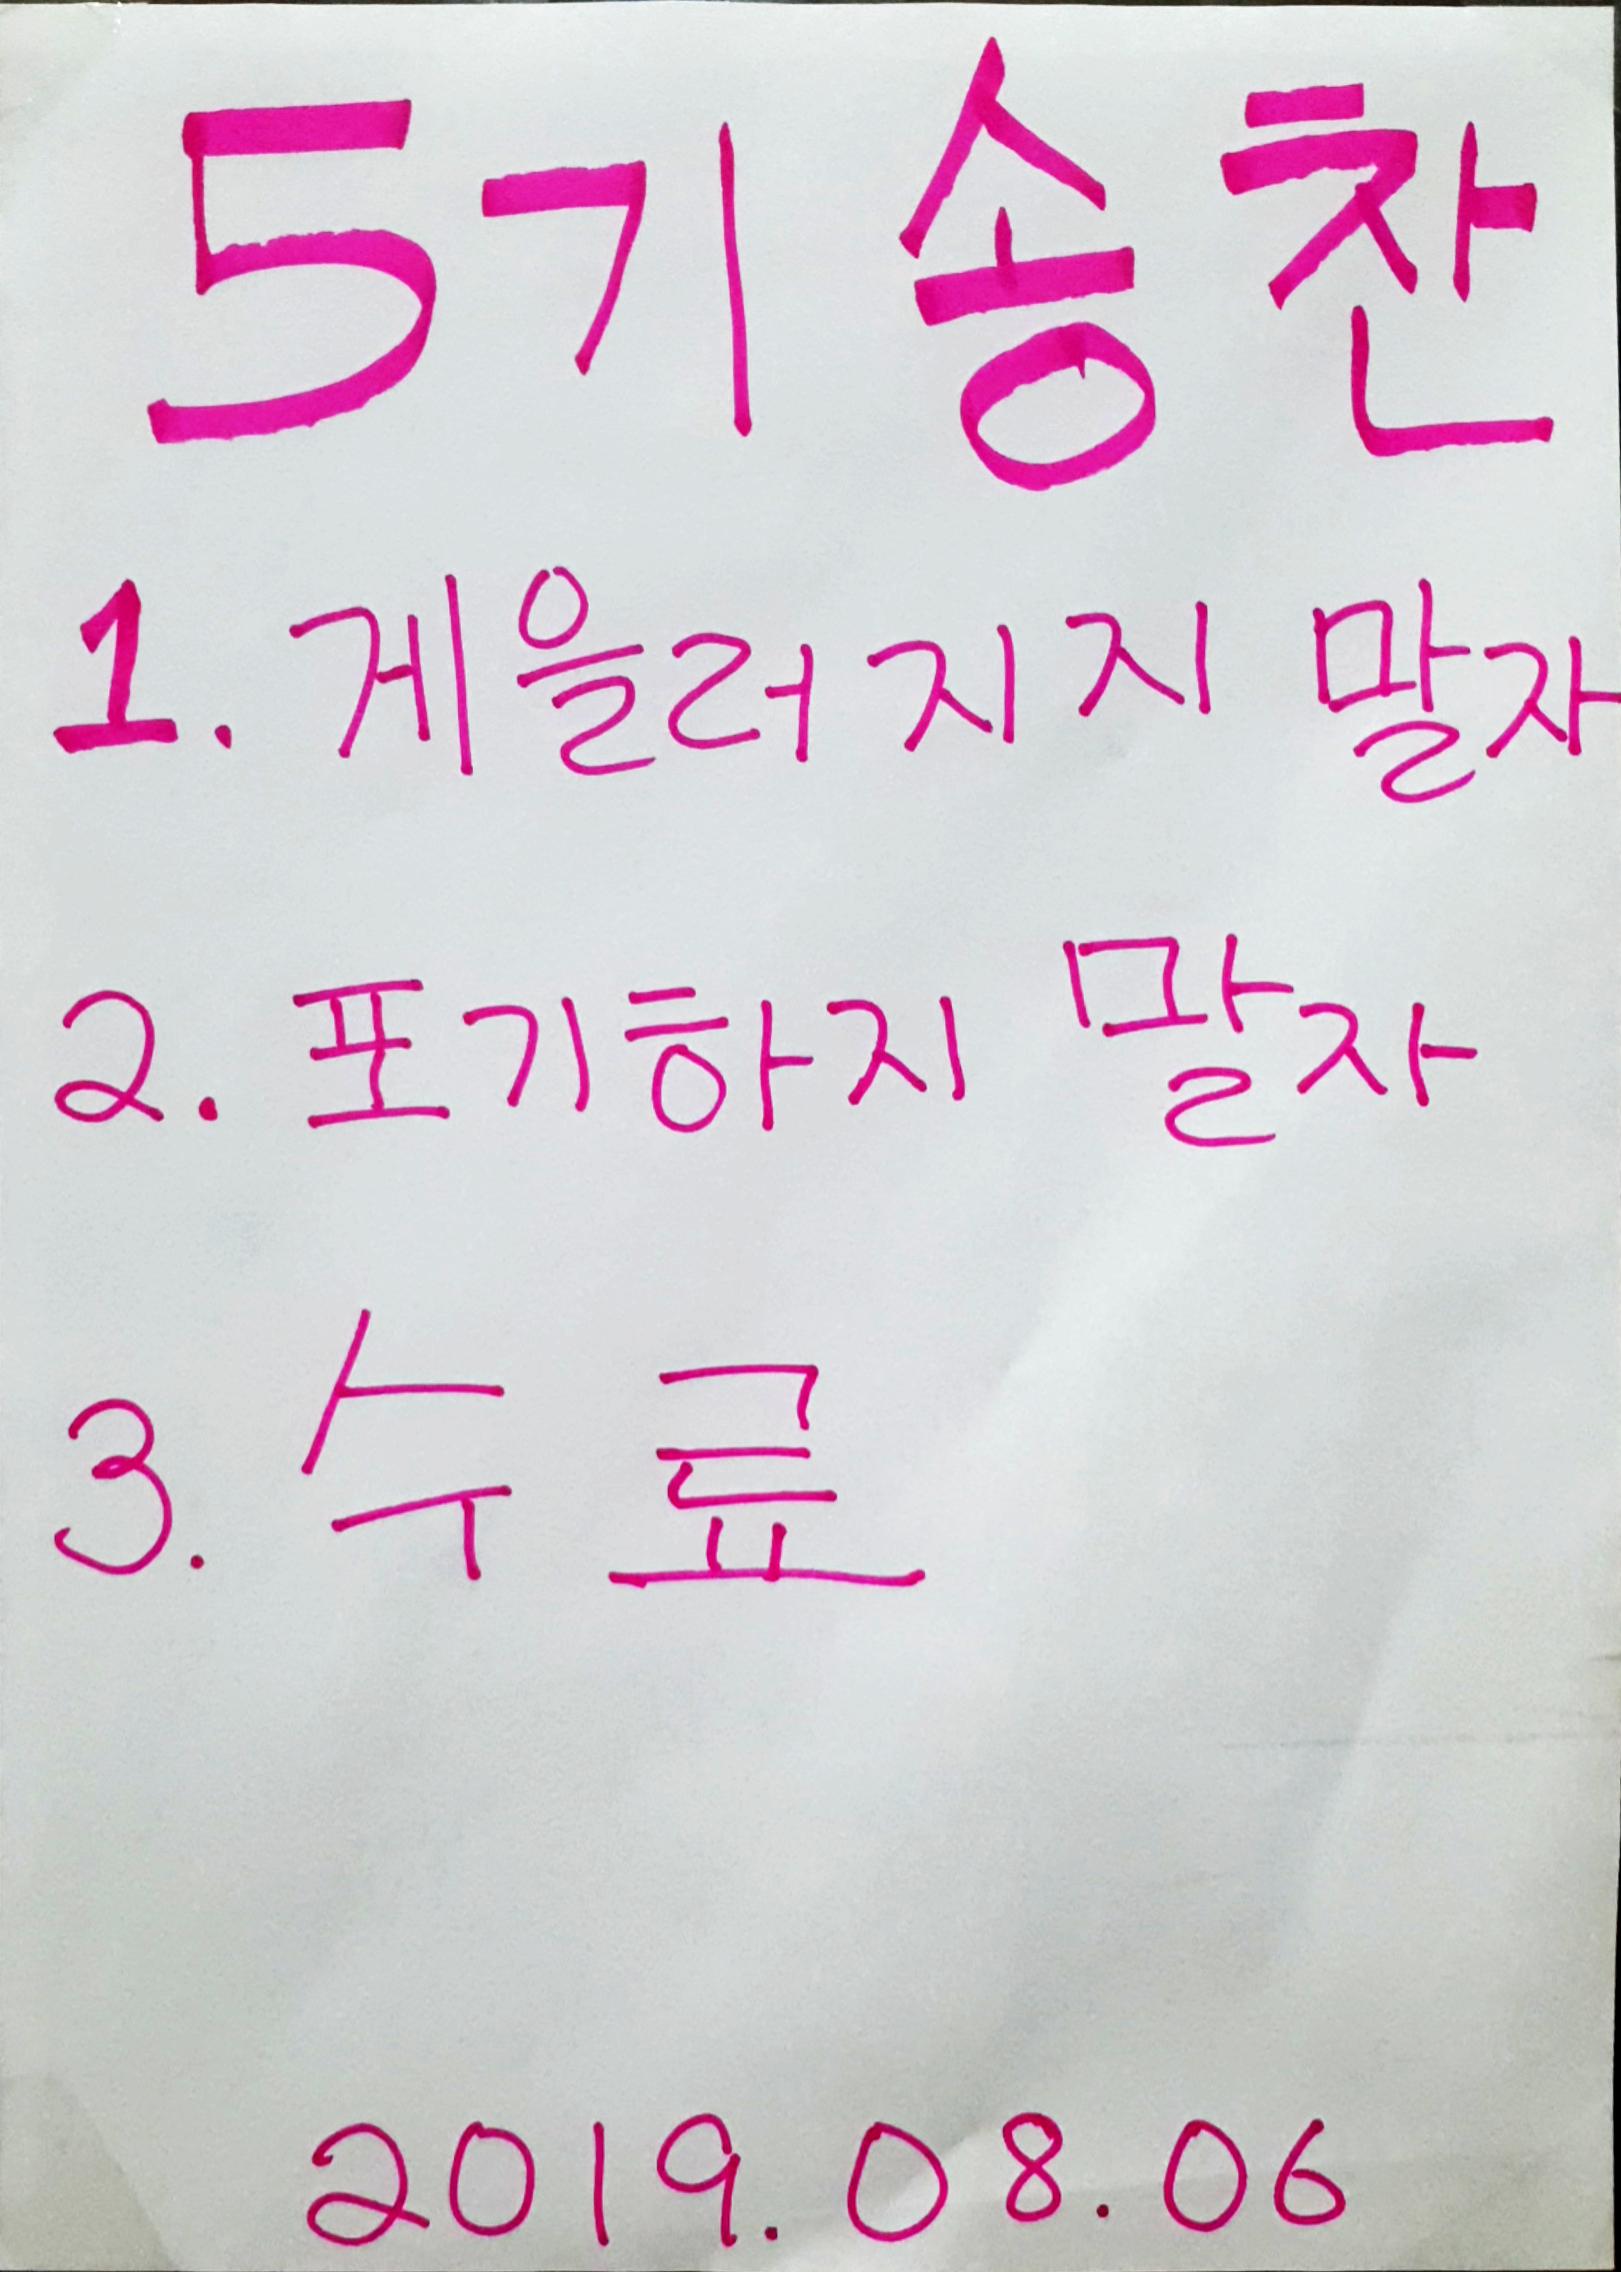 5기 송찬
1. 게을러지지 말자
2. 포기하지 말자
3. 수료
2019.08.06